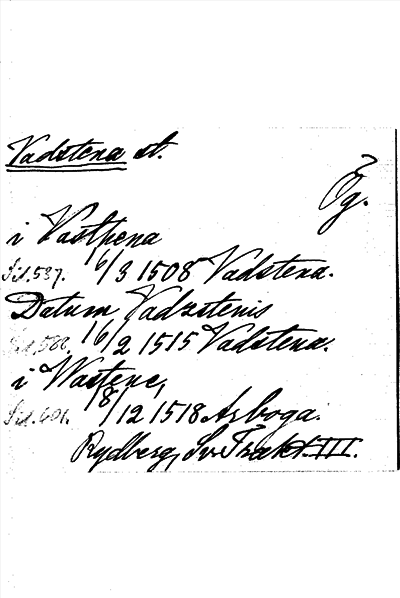 Vadstena st.
Ög.
i Vastena
Sid. 537. 16/3 1508 Vadstena.
Datum Vadzstenis
Sid. 586. 16/2 1515 Vadstena.
i Wastene,
Sid. 601. 18/12 1518 Arboga.
Rydberg, Sv. Trakt. III.